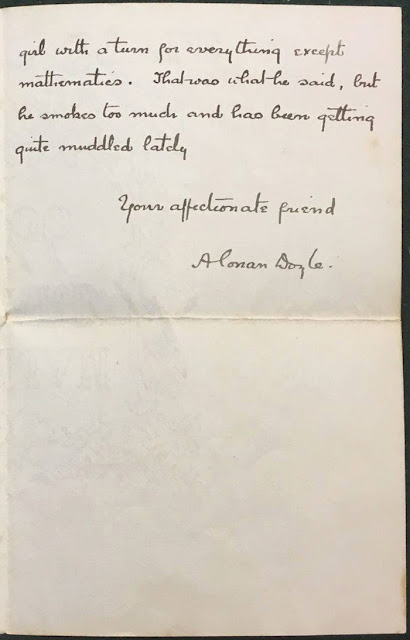 girl with a turn for everything except
mathematics. That was what he said, but
he smokes too much and has been getting
quite muddled lately
Your affectionate friend
A Conan Doyle.